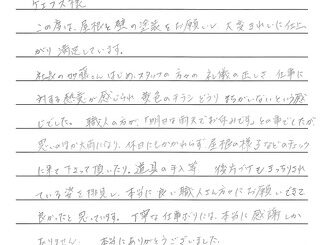 ウェブス様
この度は、屋根と壁の塗装をお願いし 大変きれいに仕上
がり 満足しています。
社長の加藤さんはじめ、スタッフの方々の 礼儀の正しさ 仕事に
対する 熱意が感じられ 夢色のチラシ どうり まちがいないという感
じでした。 職人の方が、「明日は雨天でお休みです」との事でしたが
思いのほか大雨になり、休日にもかかわらず 屋根の様子などのチェック
に来て下さって頂いたり、道具の手入等 後方づけもきっちりされ
ている姿を拝見し、本当に良い職人さん方々にお願いできて
良かったと思っています。 丁寧な仕事ぶりには、本当に感謝しか
ありません 本当にありがとうございました。